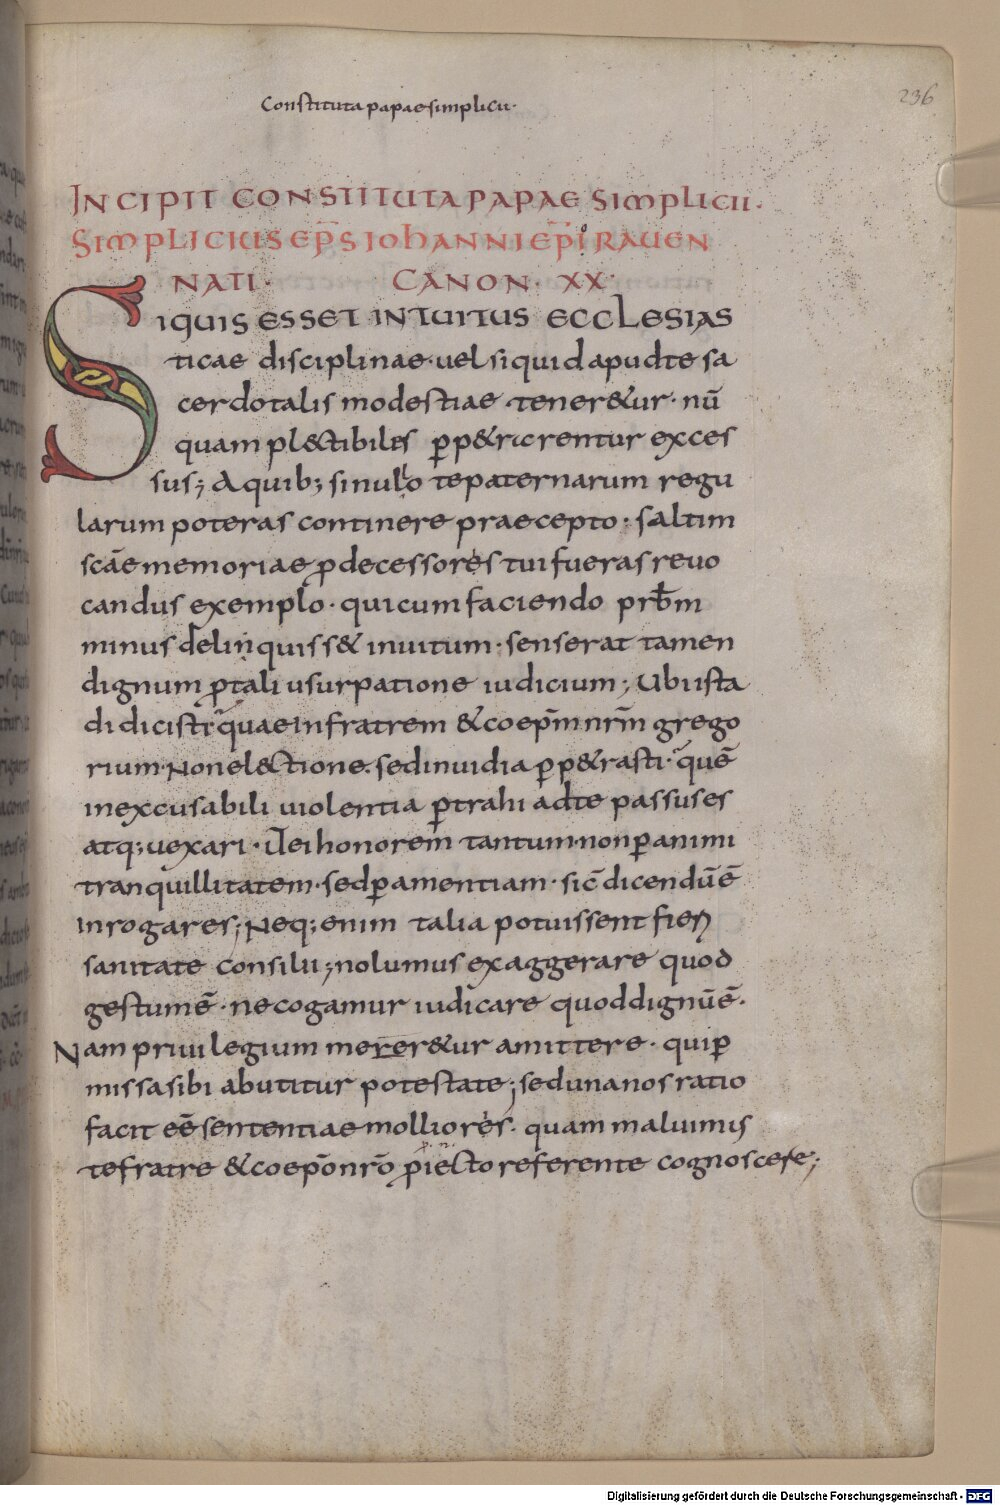 Constituta papae simplicii·
236
INCIPIT CONSTITUTA PAPAE SIMPLICII·
SIMPLICIUS EP̄S IOHANNI EP̄I RAUEN
NATI· CANON· XX·
SIQUIS ESSET INTUITUS ECCLESIAS
ticae disciplinae· uel siquid apud te sa
cerdotalis modestiae teneretur· nū
quam plectibiles ꝑpetrarentur exces
sus; A quib; si nullo te paternarum regu
larum poteras continere praecepto· saltim
scāe memoriae p̄decessores tui fueras reuo
candus exemplo· qui cum faciendo prb̄m
minus delinquisset inuitum· senserat tamen
dignum p̄ tali usurpatione iudicium; Ubi ista
didicisti quae in fratrem & coep̄m nrm̄ grego
rium· Non electione· sed inuidia ꝑpetrasti· quē
inexcusabili uiolentia ꝑtrahi ad te passus es
atq; uexari· Ut ei honorem tantum· non ꝑ animi
tranquillitatem· sed ꝑ amentiam· sic̄ dicendū ē
inrogares; Neq; enim talia potuissent fieri
sanitate consilii; nolumus exaggerare quod
gestum ē· ne cogamur iudicare quod dignū ē·
Nam priuilegium meretur amittere· qui ꝑ
missa sibi abutitur potestate; sed una nos ratio
facit eē sententiae molliores· quam maluimus
te fratre & coep̄o nrō p̄iecto referente cognoscere;
Digitalisierung gefördert durch die Deutsche Forschungsgemeinschaft - DFG